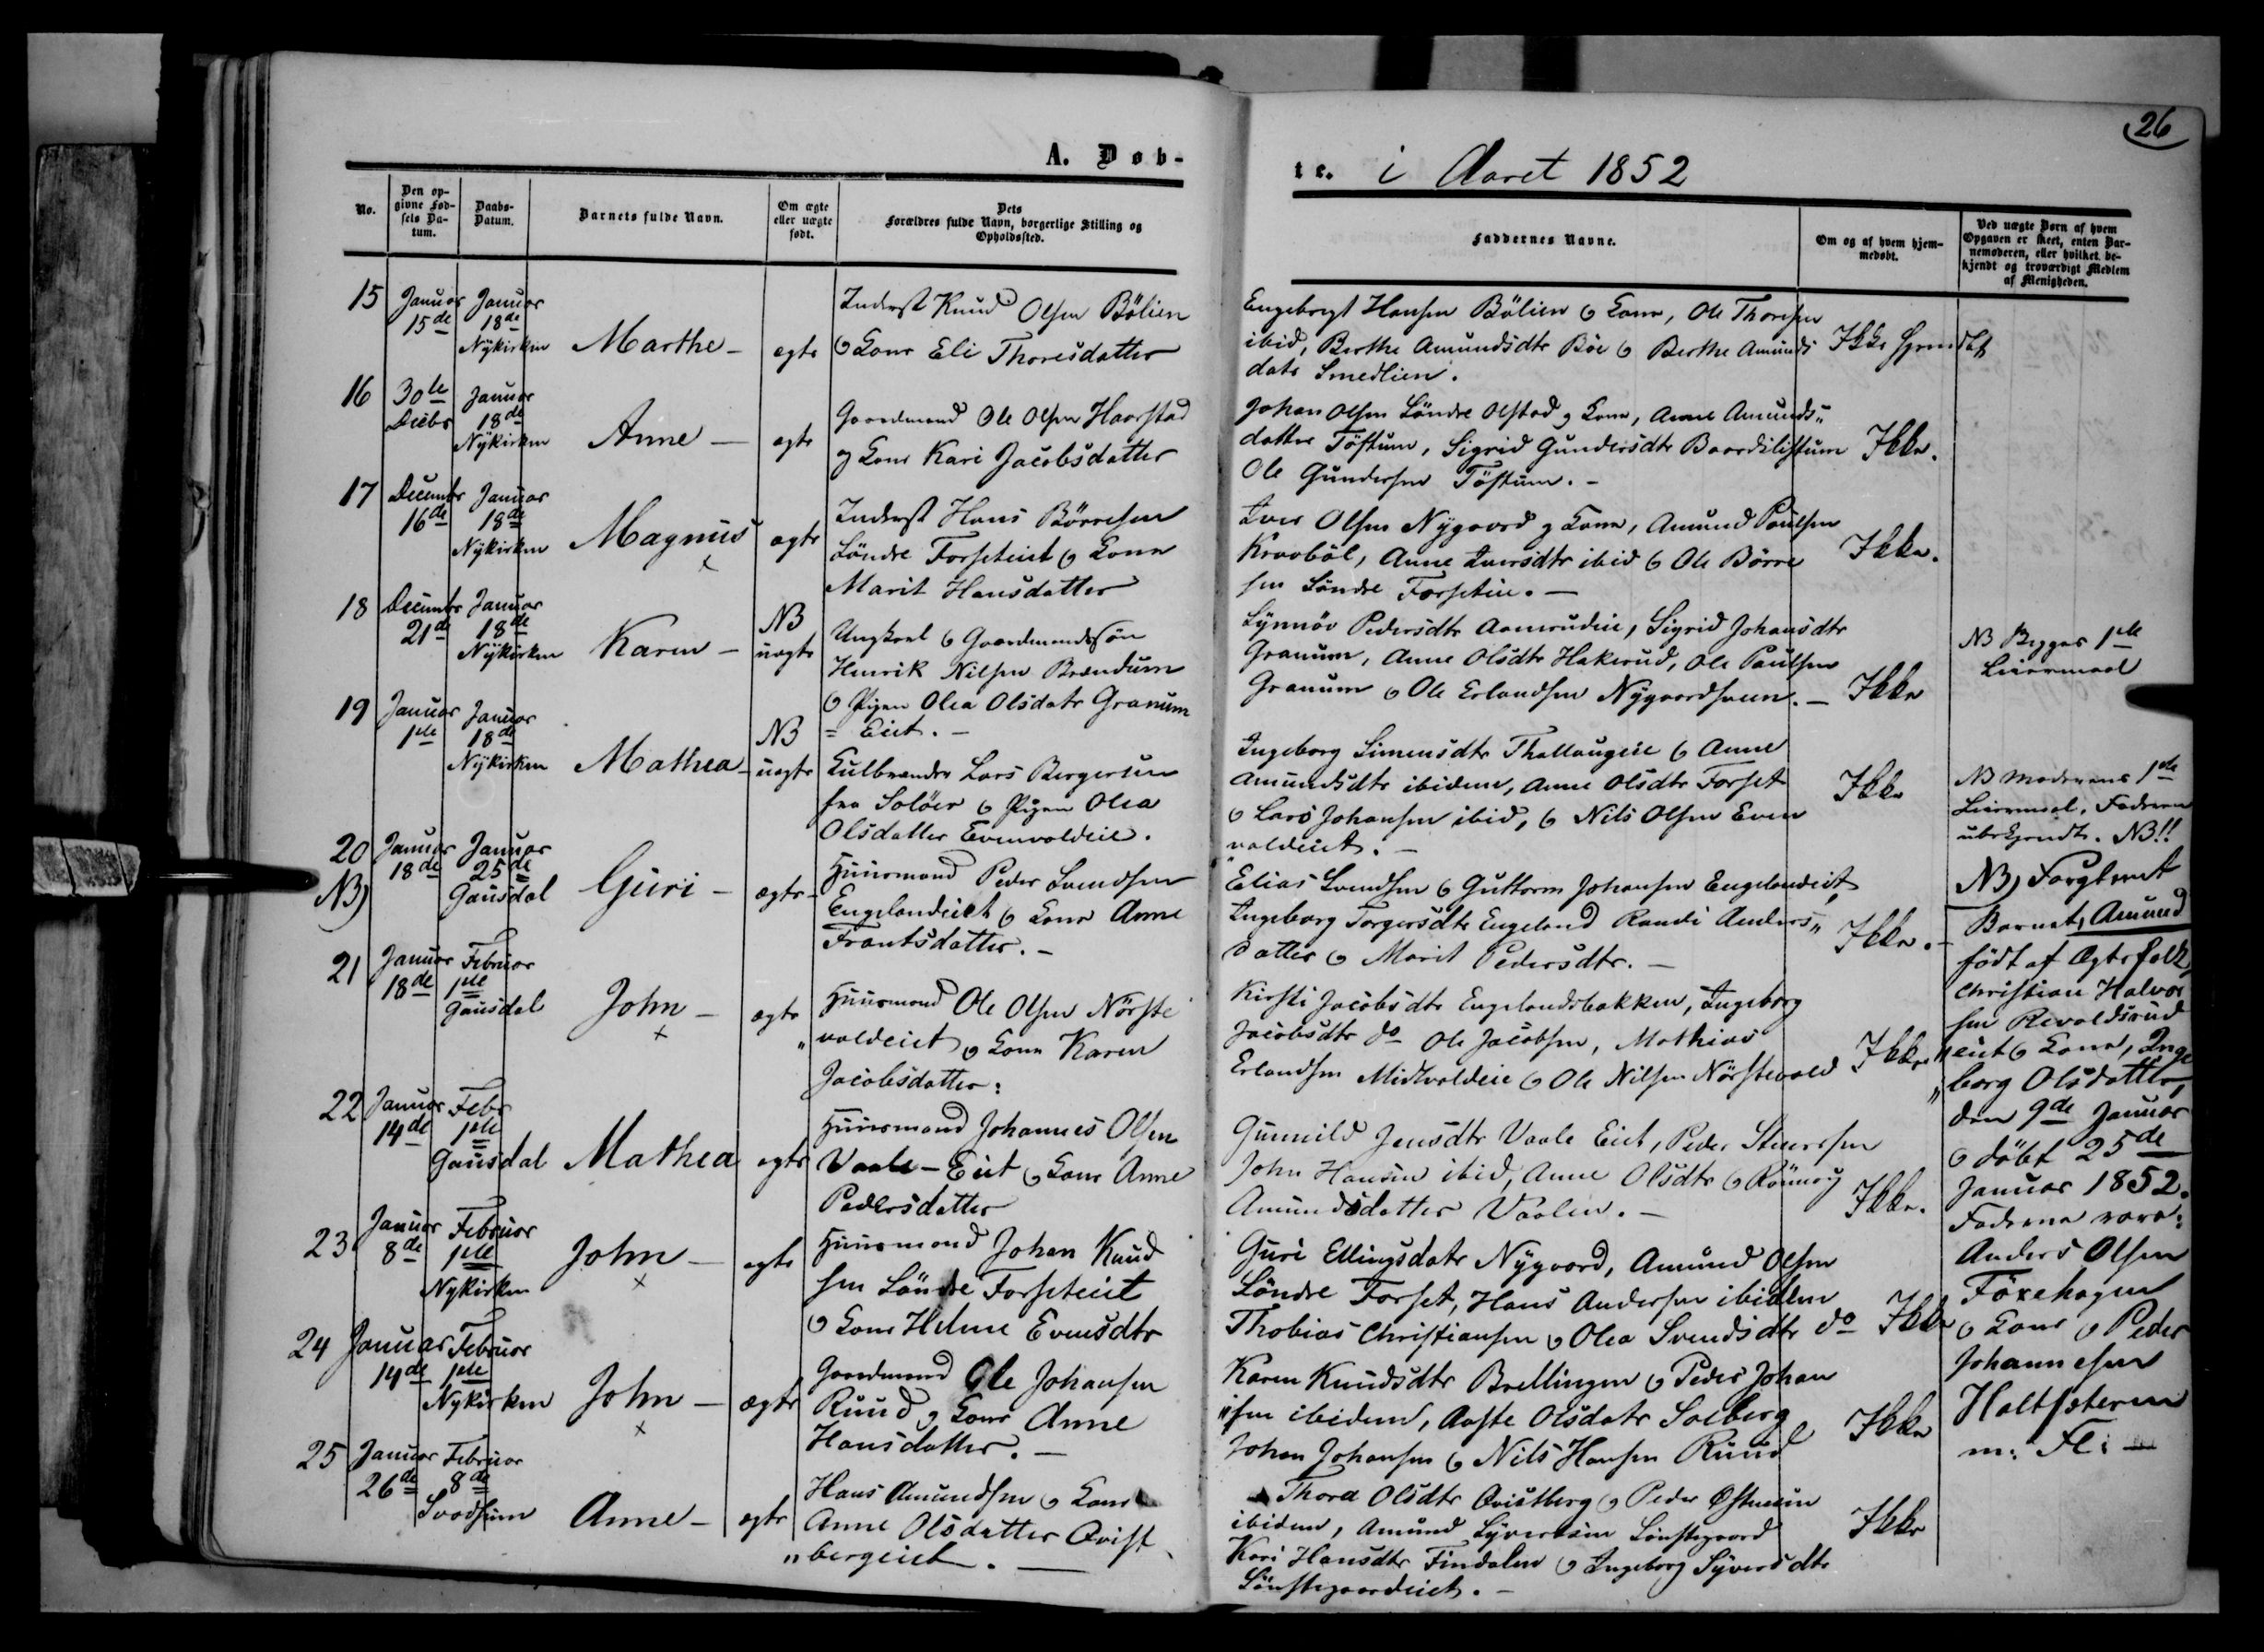 26
A. Døb-
te. i Aaret 1852
No.
Den op-
givne Fød-
sels Da-
tum.
Daabs-
Datum.
Barnets fulde Navn.
Om ægte
eller uægte
født.
Dets
Forældres fulde Navn, borgerlige Stilling og
Opholdssted.
Faddernes Navne.
Om og af hvem hjem-
medøbt.
Ved uægte Børn af hvem
Opgaven er skeet, enten Bar-
nemoderen, eller hvilket be-
kjendt og troværdigt Medlem
af Menigheden.
15
Januar
15de
Januar
18de
Nÿkirken
Marthe -
ægte
Inderst Knud Olsen Bölien
og Kone Eli Thoresdatter
Engebregt Hansen Bölien og Kone, Ole Thoresen
ibid, Berthe Amundsdtr Böe og Berthe Amunds
datr Smedlien.
Ikke
16
30te
Decbr
Januar
18de
Nÿkirken
Anne -
ægte
Gaardmand Ole Olsen Haarstad
og Kone Kari Jacobsdatter
Johan Olsen Söndre Olstad og Kone, Anne Amunds-
datter Töftum, Sigrid Gundersdtr
Ole Gundersen Töftum. -
Ikke.
17
Decembr
16de
Januar
18de
Nÿkirken
Magnus
x
ægte
Inderst Hans Börresen
Söndre Forseteiet og Kone
Marit Hansdatter
Iver Olsen Nÿgaard og Kone, Amund Paulsen
Kraaböl, Anne Iversdtr ibid og Ole Börre
sen Söndre Forsetie. -
Ikke.
18
Decembr
21de
Januar
18de
Nÿkirken
Karen -
NB
uægte
Ungkarl og Gaardmandssön
Henrik Nilsen Brændum
og Pigen Olea Olsdatr Granum
= Eiet. -
Synnöv Pedersdtr Aamrudeie, Sigrid Johansdtr
Granum, Anne Olsdtr Hakerud, Ole Paulsen
Granum og Ole Erlandsen -
Ikke
NB Begges 1ste
Leiermaal
19
Januar
1ste
Januar
18de
Nÿkirken
Mathea -
NB
uægte
Kulbrænder Lars Bergersen
fra Solöer og Pigen Olea
Olsdatter Evenvoldeie.
Ingeborg Simensdtr Thallaugeie og Anne
Amundsdtr ibidem, Anne Olsdtr Forset
og Lars Johansen ibid, og Nils Olsen Even
voldeiet. -
Ikke
NB Moderens 1ste
Leiermaal, Faderen
ubekjendt. NB!!
20
NB)
Januar
18de
Januar
25de
Gausdal
Guri -
ægte -
Huusmand Peder Svendsen
Engelandeiet og Kone Anne
Frantsdatter. -
Elias Svendsen og Guttorm Johansen Engelandeiet,
Ingeborg Torgersdtr Engeland Randi Anders"
datter og Marit Pedersdtr. -
Ikke. -
NB) Forglemt
Barnet, Amund
födt af Ægtefolk,
Christian Halvor
sen Revoldsrud
eiet og Kone, Inge
" borg Olsdatter,
den 9de Januar
og döbt 25de
Januar 1852.
Fadderne vare:
Anders Olsen
Föxehagen
og Kone og Peder
Johannesen
Holtseteren
m: Fl: -
21
Januar
18de
Februar
1ste
Gausdal
John -
x
ægte
Huusmand Ole Olsen Nörste
" voldeiet og Kone Karen
Jacobsdatter:
Kirsti Jacobsdtr Engelandsbakken, Ingeborg
Jacobsdtr do Ole Jacobsen, Mathias
Erlandsen Midtvoldeie og Ole Nilsen Nörstevold
Ikke
22
Januar
14de
Febr
1ste
Gausdal
Mathea
ægte
Huusmand Johannes Olsen
Vaale - Eiet og Kone Anne
Pedersdatter
Gunnild Jensdtr Vaale Eiet, Peder
John Hansen ibid, Anne Olsdtr og Rönnoug
Amundsdatter Vaalen. -
Ikke.
23
Januar
8de
Februar
1ste
Nykirken
John -
x
ægte
Huusmand Johan Knud
sen Söndre Forseteiet
og Kone Helene Evensdtr
Guri Ellingsdatr Nÿgaard, Amund Olsen
Söndre Forset, Hans Andersen ibidem
Thobias Christiansen og Olea Svendsdtr do
Ikke
24
Januar
14de
Februar
1ste
Nykirken
John -
x
ægte
Gaardmand Ole Johansen
Ruud og Kone Anne
Hansdatter. -
Karen Knudsdtr Brellingen og Peder Johan
" sen ibidem, Aaste Olsdatr Solberg
Johan Johansen og Nils Hansen Ruud
Ikke
25
Januar
26de
Februar
8de
Svadsum
Anne -
ægte
Hans Amundsen og Kone
Anne Olsdatter Qvist
" bergeiet. -
Thora Olsdtr Qvistberg og Peder
ibidem, Amund Syversen
Kari Hansdtr Findalen og Ingeborg Syversdtr
Ikke